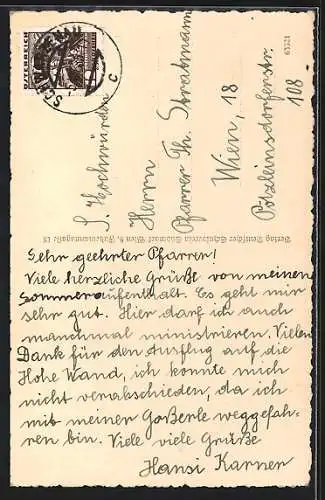 Sehr geehrter Pfarrer!
Viele herzliche Grüße von meinem
Sommeraufenthalt. Es geht mir
sehr gut. Hier darf ich auch
manchmal ministrieren. Vielen
Dank für den Ausflug auf die
Hohe Wand, ich konnte mich
nicht verabschieden, da ich
mit meiner Goßerle weggefah-
ren bin. Viele viele Grüße
Hansi Karner
S. Hochwürden
Herrn
Pfarrer Th. Stratmann
Wien, 18
Pötzleinsdorferstr.
108
63321
Verlag Deutscher Schulverein Südmark Wien 8, Fuhrmannsgasse 18
ÖSTERREICH